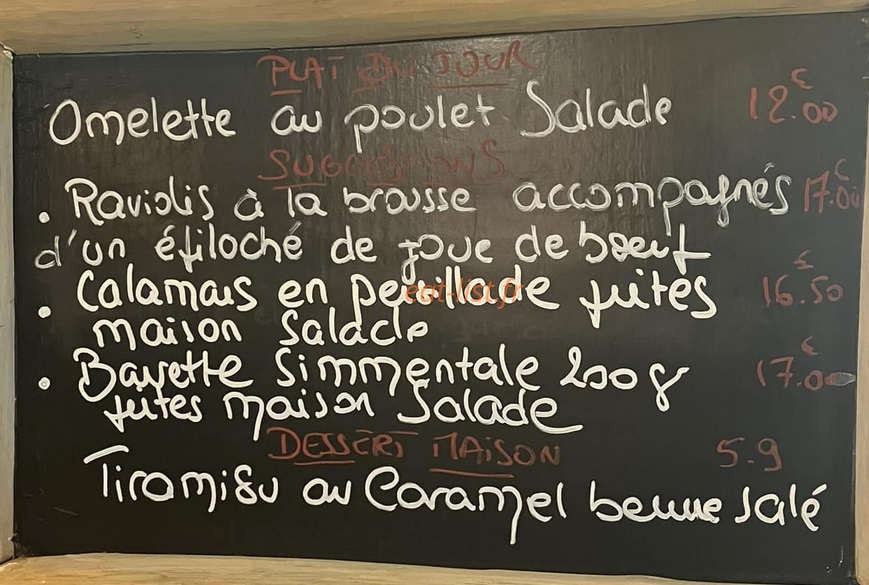 PLAT DU JOUR
Omelette au poulet Salade 12.€00
SUGGESTIONS
. Raviolis à la brousse accompagnés 17.€00
d'un éfiloché de joue de boeuf
. Calamars en persillade frites 16.€50
maison Salade
. Bavette Simmentale 200gr 17.€00
frites maison Salade
DESSERT MAISON 5.9
Tiramisu au Caramel beurre salé
eat-list.fr